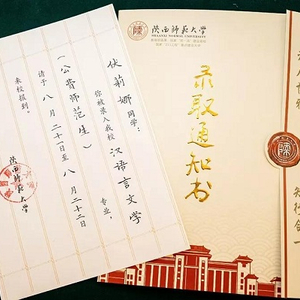 伏莉娜 同学:
你被录入我校 汉语言文学 专业,
(公费师范生)
请于八月二十一日至八月二十二日
来校报到。
陕西师范大学
陕西师范大学
SHAANXI NORMAL UNIVERSITY
录取通知书